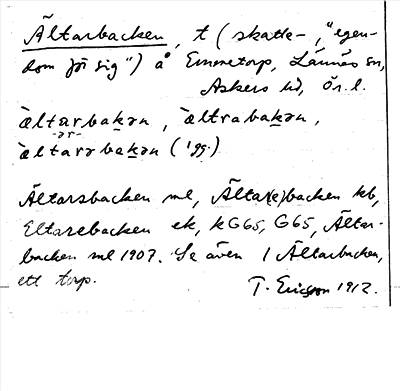 Ältarbacken, t (skatte-, "egen-
dom för sig") å Emmetorp, Lännäs sn,
Askers hd, Ör. l.
ältarbakən, ältrabakən,
-ər-
ältarəbakən (1 gg.)
Ältarsbacken ml, Älta(e)backen kb,
Eltarebacken ek, kG65, G65, Ältar-
backen ml 1907. Se även 1 Ältarbacken,
ett torp.
T. Ericsson 1912.